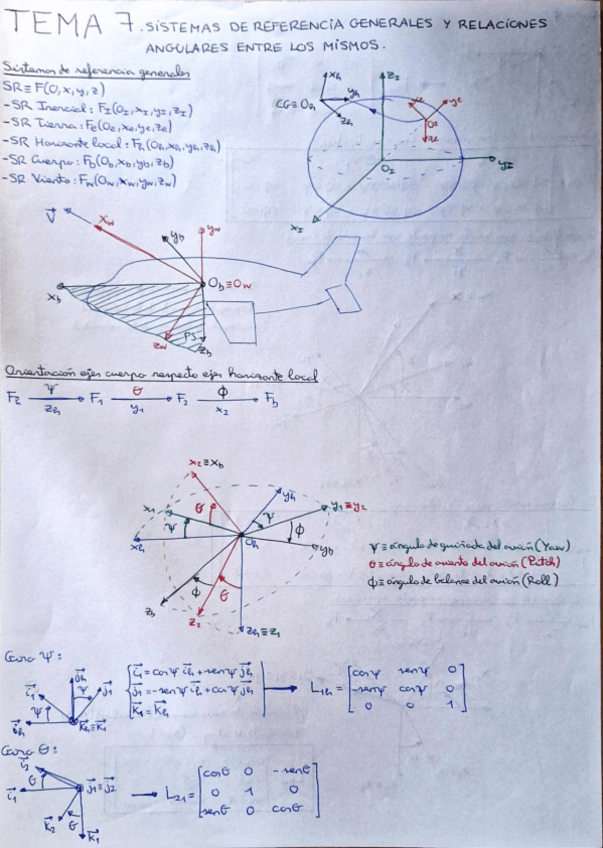 TEMA 7. SISTEMAS DE REFERENCIA GENERALES Y RELACIONES
ANGULARES ENTRE LOS MISMOS.
Sistemas de referencia generales
SR ≡ F(O, x, y, z)
- SR Inercial: F_I(O_I, x_I, y_I, z_I)
- SR Tierra: F_e(O_e, x_e, y_e, z_e)
- SR Horizonte local: F_h(O_h, x_h, y_h, z_h)
- SR Cuerpo: F_b(O_b, x_b, y_b, z_b)
- SR Viento: F_w(O_w, x_w, y_w, z_w)
x_h
y_h
CG ≡ O_h
z_h
z_I
y_e
O_e
O_I
y_I
x_I
V
x_w
y_b
y_w
O_b ≡ O_w
x_b
PS
z_w
z_b
Orientación ejes cuerpo respecto ejes horizonte local
F_h ψ z_h F_1 θ y_1 F_2 ϕ x_2 F_b
x_2 ≡ x_b
y_h
x_1
θ
ψ
y_1 ≡ y_2
ψ
ϕ
x_h
O_h
y_b
ϕ
θ
z_b
z_2
z_h ≡ z_1
ψ ≡ ángulo de guiñada del avión (Yaw)
θ ≡ ángulo de asiento del avión (Pitch)
ϕ ≡ ángulo de balance del avión (Roll)
Giro ψ:
i_1 j_h ψ j_1
ψ
i_h k_h ≡ k_1
i_1 = cosψ i_h + senψ j_h
j_1 = -senψ i_h + cosψ j_h
k_1 = k_h
L_1h =
cosψ senψ 0
-senψ cosψ 0
0 0 1
Giro θ:
i_2
θ
i_1
j_1 ≡ j_2
k_2 θ
k_1
L_21 =
cosθ 0 -senθ
0 1 0
senθ 0 cosθ